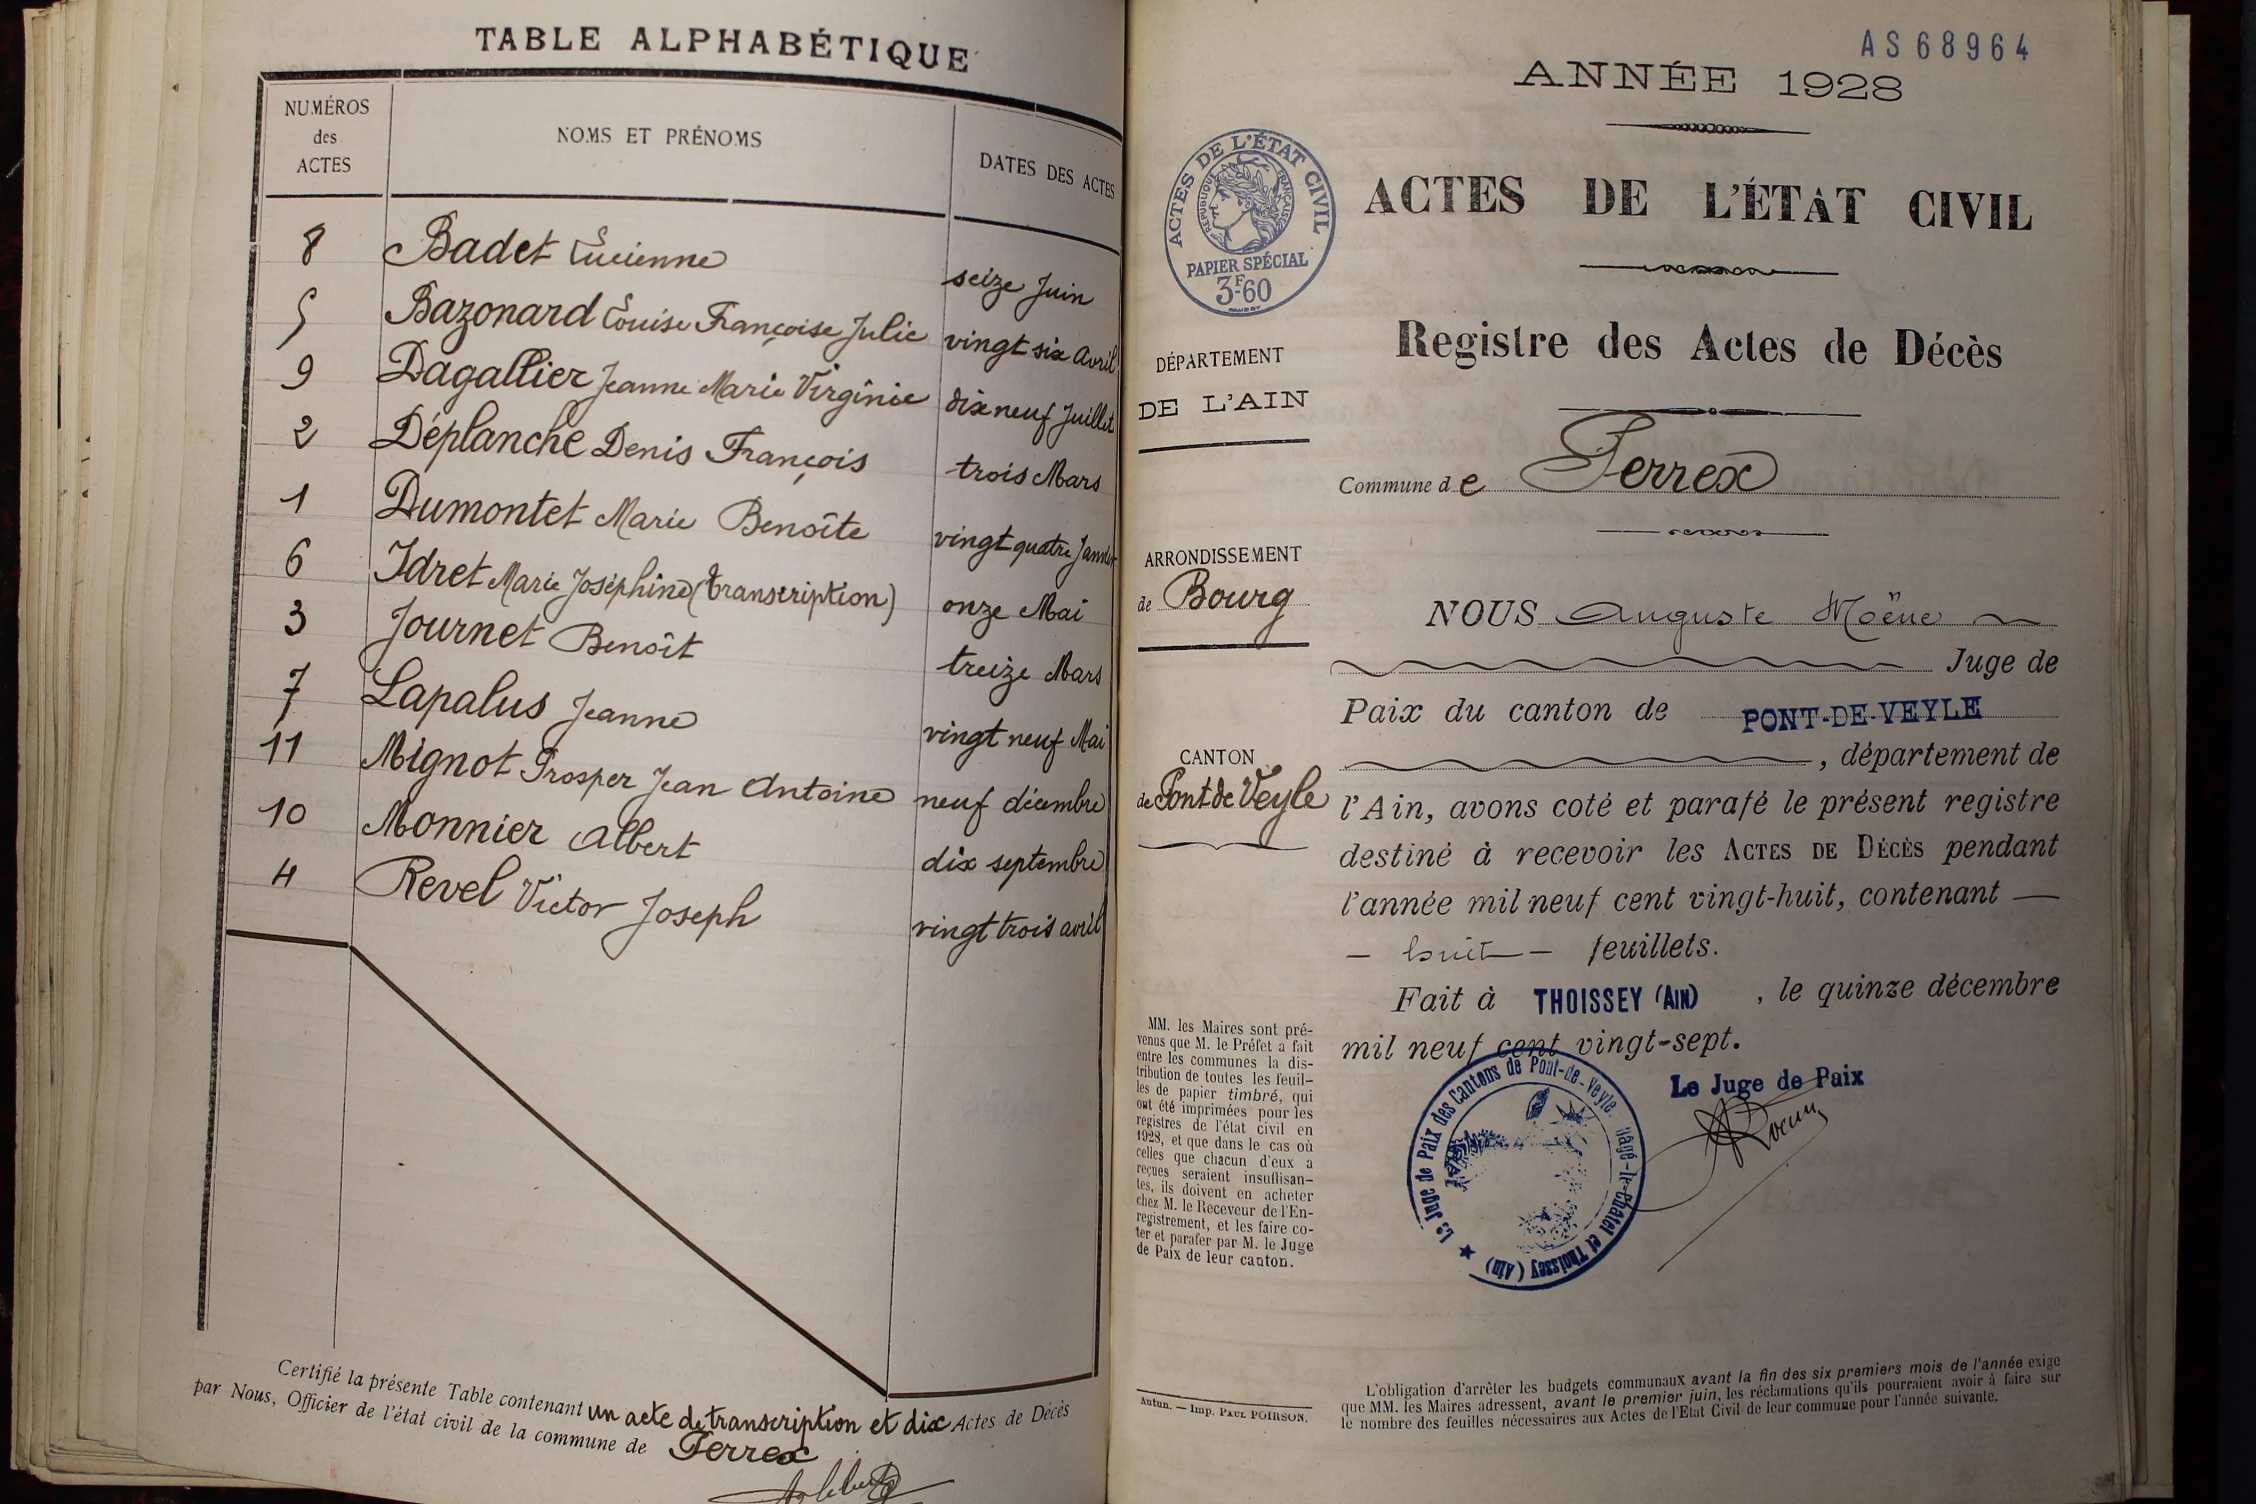 TABLE ALPHABÉTIQUE
NUMÉROS des ACTES
NOMS ET PRÉNOMS
DATES DES ACTES
8 Badet Lucienne seize Juin
5 Bazonard Louise Françoise Julie vingt six Avril
9 Dagallier Jeanne Marie Virginie dix neuf Juillet
2 Déplanche Denis François trois Mars
1 Dumontet Marie Benoîte vingt quatre Janvier
6 Idret Marie Joséphine (transcription) onze Mai
3 Journet Benoît treize Mars
7 Lapalus Jeanne vingt neuf Mai
11 Mignot Prosper Jean Antoine neuf décembre
10 Monnier Albert dix septembre
4 Revel Victor Joseph vingt trois avril
Certifié la présente Table contenant un acte de transcription et dix Actes de Décès
par Nous, Officier de l'état civil de la commune de Perrex
AS68964
ANNÉE 1928
ACTES DE L'ÉTAT CIVIL
RÉPUBLIQUE FRANÇAISE
PAPIER SPÉCIAL
3F-60
ACTES DE L'ÉTAT CIVIL
Registre des Actes de Décès
DÉPARTEMENT
DE L'AIN
Commune de Perrex
ARRONDISSEMENT
de Bourg
CANTON
de Pont de Veyle
NOUS Auguste Moëne
Juge de
Paix du canton de PONT-DE-VEYLE
, département de
l'Ain, avons coté et parafé le présent registre
destiné à recevoir les ACTES DE DÉCÈS pendant
l'année mil neuf cent vingt-huit, contenant —
— huit — feuillets.
Fait à THOISSEY (AIN) , le quinze décembre
mil neuf cent vingt-sept.
Le Juge de Paix
Le Juge de Paix des Cantons de Pont-de-Veyle, Bâgé-le-Châtel et Thoissey (Ain)
MM. les Maires sont pré-
venus que M. le Préfet a fait
entre les communes la dis-
tribution de toutes les feuil-
les de papier timbré, qui
ont été imprimées pour les
registres de l'état civil en
1928, et que dans le cas où
celles que chacun d'eux a
reçues seraient insuffisan-
tes, ils doivent en acheter
chez M. le Receveur de l'En-
registrement, et les faire co-
ter et parafer par M. le Juge
de Paix de leur canton.
Autun. — Imp. PAUL POIRSON.
L'obligation d'arrêter les budgets communaux avant la fin des six premiers mois de l'année exige
que MM. les Maires adressent, avant le premier juin, les réclamations qu'ils pourraient avoir à faire sur
le nombre des feuilles nécessaires aux Actes de l'Etat Civil de leur commune pour l'année suivante.